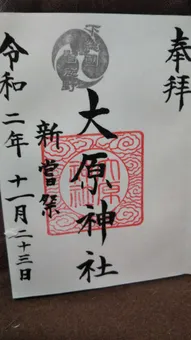 奉拝
大原神社
新嘗祭
令和二年十一月二十三日